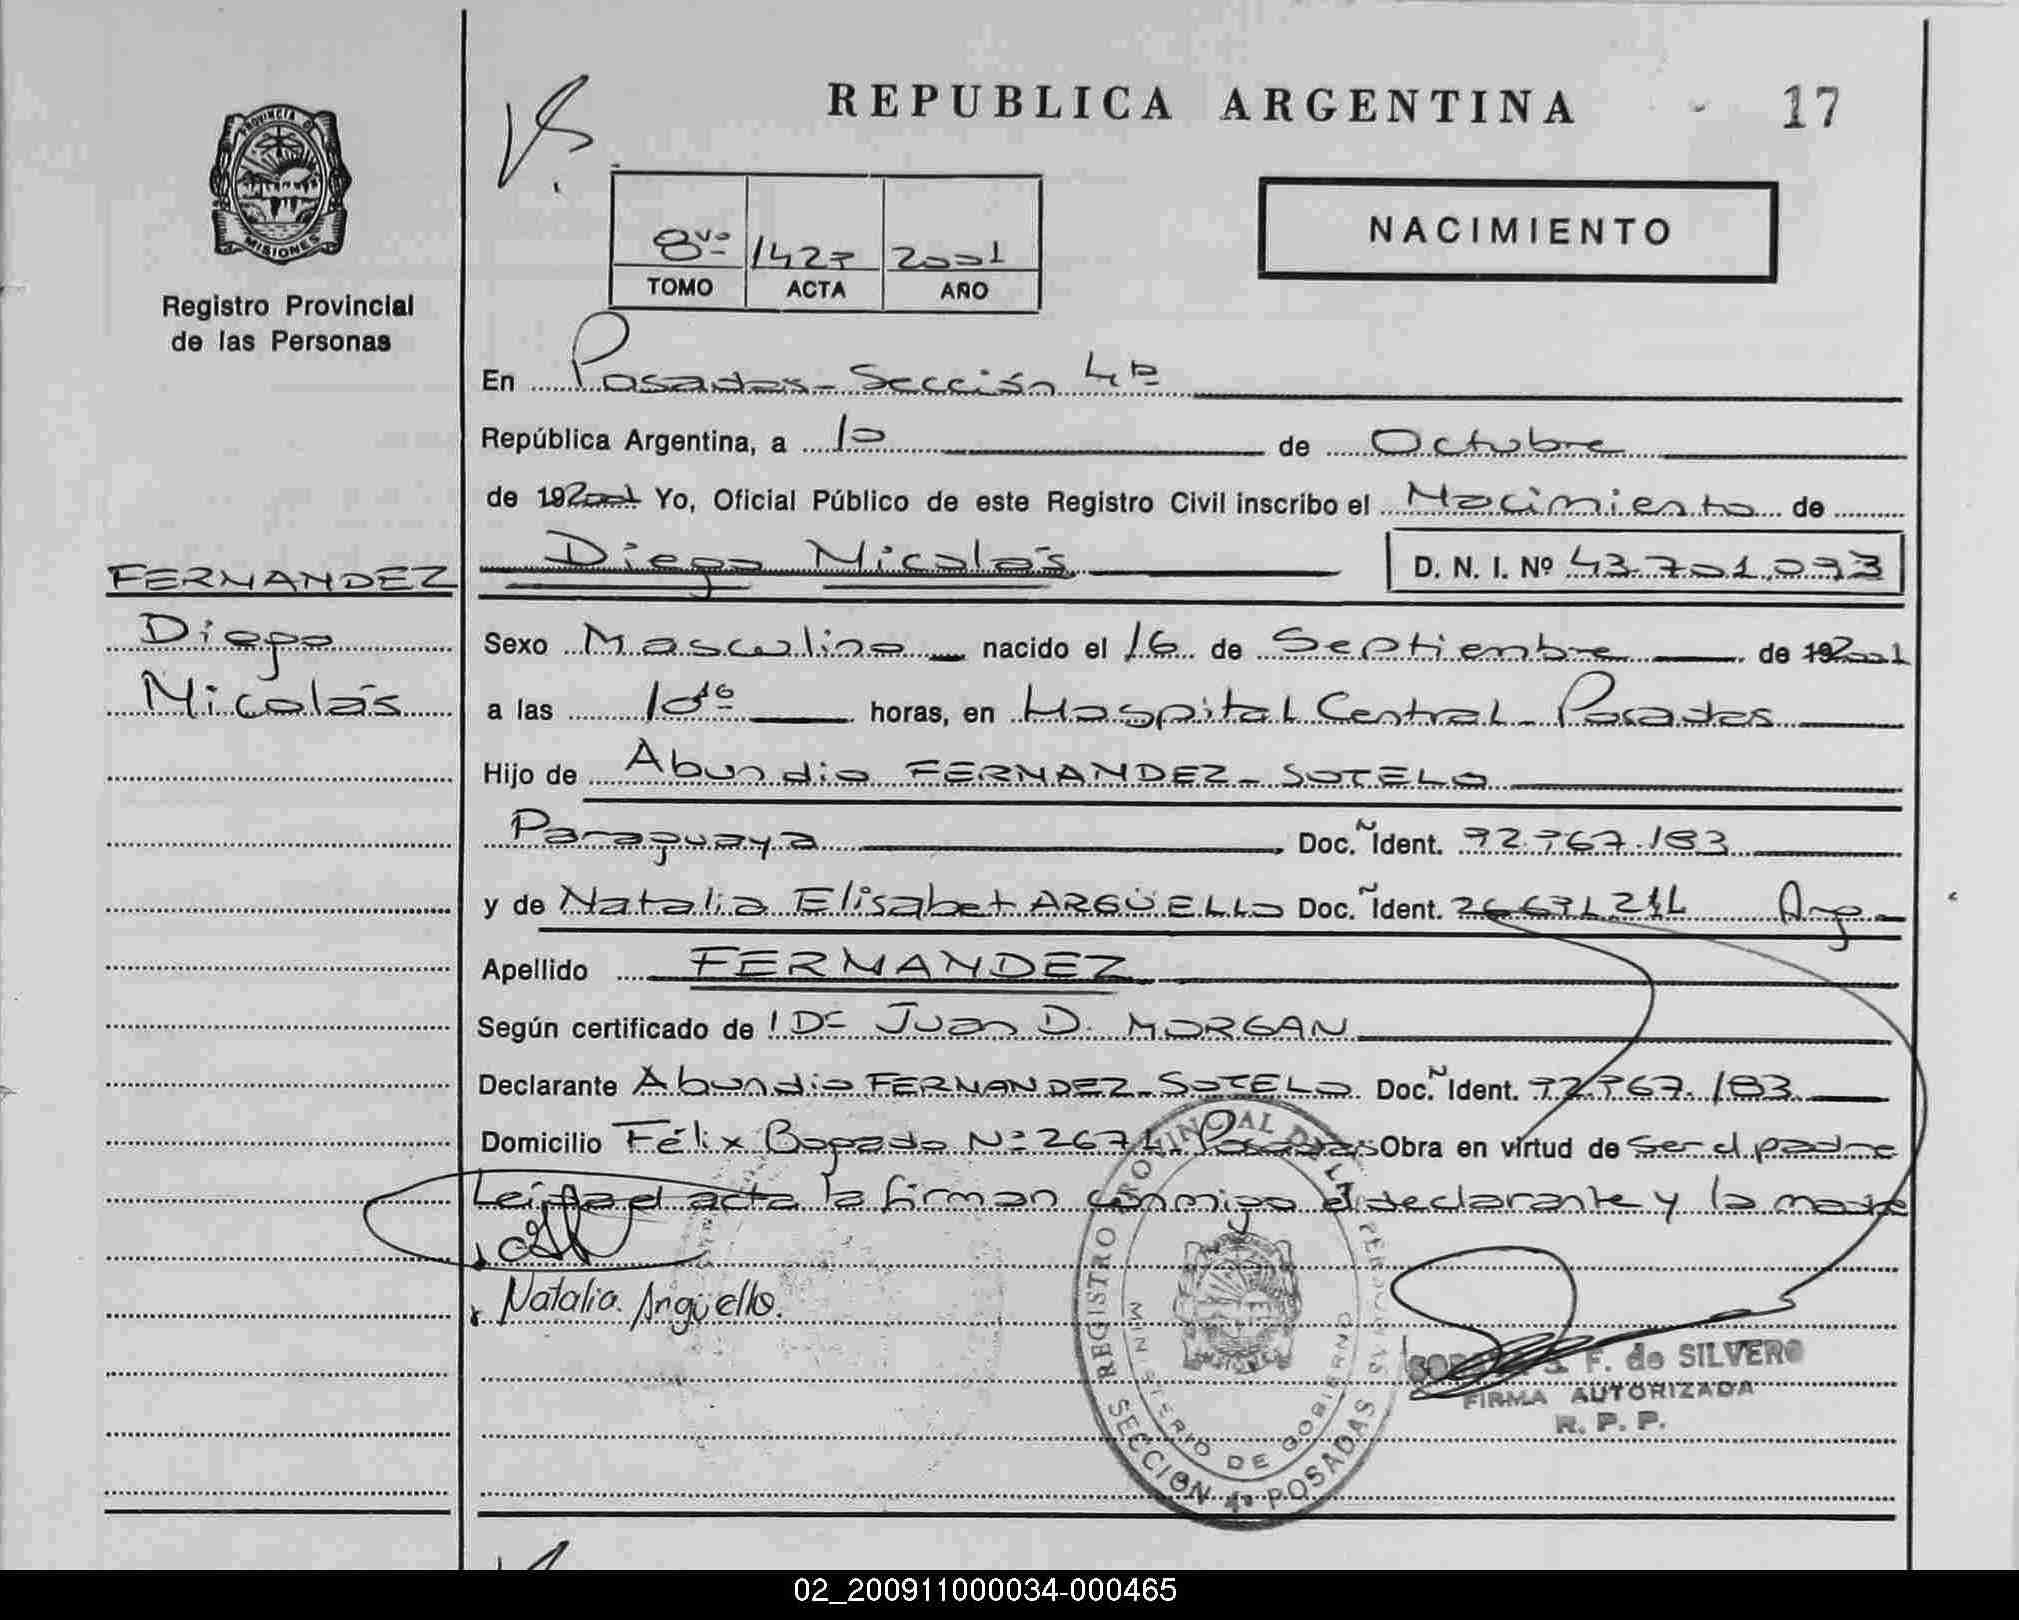 REPUBLICA ARGENTINA
17
PROVINCIA DE
MISIONES
Registro Provincial
de las Personas
8vo 1427 2001
TOMO ACTA AÑO
NACIMIENTO
En Posadas - Sección 4ª
República Argentina, a 10 de Octubre
de 192001 Yo, Oficial Público de este Registro Civil inscribo el Nacimiento de
Diego Nicolás
D. N. I. Nº 43.701.093
FERNANDEZ
Diego
Nicolás
Sexo Masculino nacido el 16 de Septiembre de 192001
a las 10 horas, en Hospital Central - Posadas
Hijo de Abundio FERNANDEZ - SOTELO
Paraguaya Doc. Ident. 92.767.183
y de Natalia Elisabet ARGÜELLO Doc. Ident. Arg
Apellido FERNANDEZ
Según certificado de Dr Juan D. MORGAN
Declarante Abundio FERNANDEZ - SOTELO Doc. Ident. 92.767.183
Domicilio Félix Bogado Nº Posadas Obra en virtud de ser el padre
Leída el acta la firman conmigo el declarante y la madre
Natalia Argüello.
REGISTRO PROVINCIAL DE LAS PERSONAS
MINISTERIO DE GOBIERNO
SECCION 4ª POSADAS
F. de SILVERO
FIRMA AUTORIZADA
R. P. P.
02_200911000034-000465